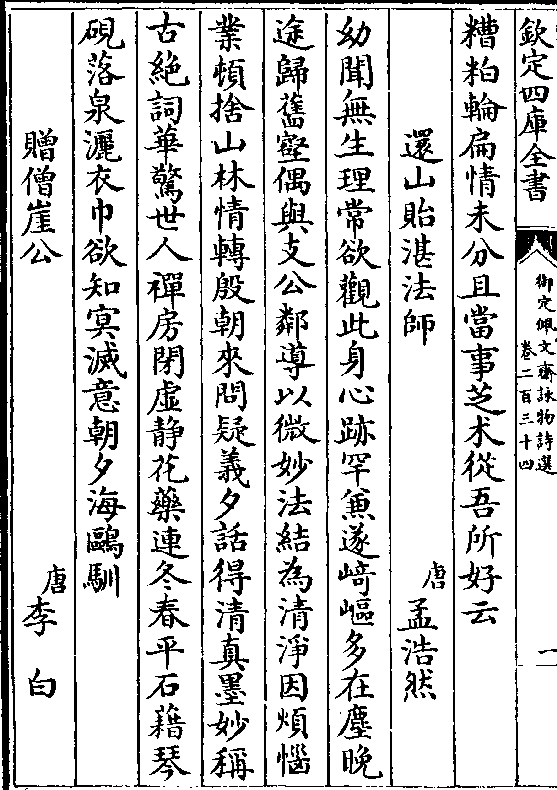 欽定四庫全書
御定佩文齋詠物詩選
卷二百三十四
一
糟粕輪扁情未分且當事芝朮從吾所好云
還山貽湛法師
唐孟浩然
幼聞無生理常欲觀此身心跡罕兼遂崎嶇多在塵晚
途歸舊壑偶與支公鄰導以微妙法結為清淨因煩惱
業頓捨山林情轉殷朝來問疑義夕話得清真墨妙稱
古絶詞華驚世人禪房閉虛静花藥連冬春平石藉琴
硯落泉灑衣巾欲知寞滅意朝夕海鷗馴
贈僧崖公
唐李白